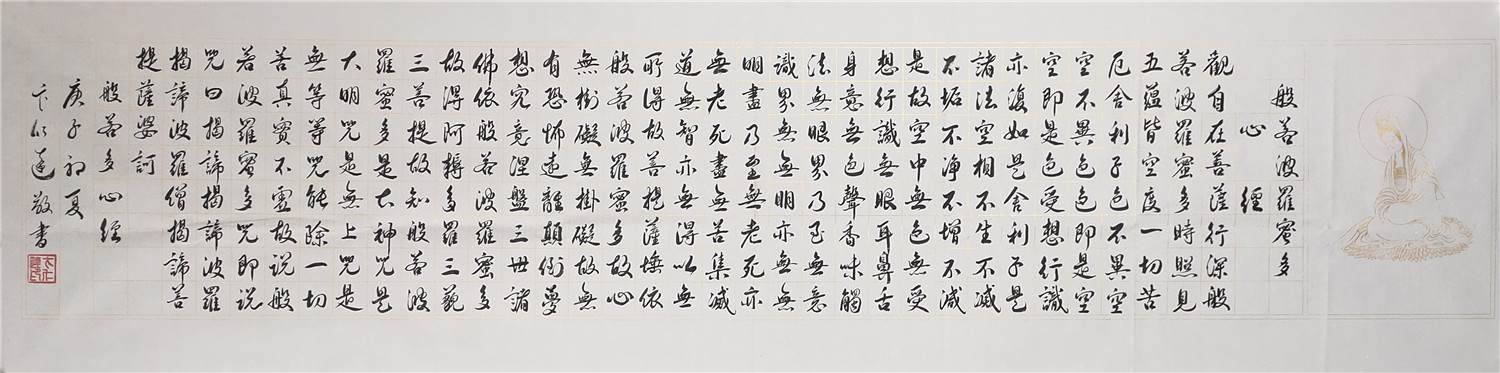 般若波羅蜜多
心經
觀自在菩薩行深般
若波羅蜜多時照見
五蘊皆空度一切苦
厄舍利子色不異空
空不異色色即是空
空即是色受想行識
亦復如是舍利子是
諸法空相不生不滅
不垢不淨不增不減
是故空中無色無受
想行識無眼耳鼻舌
身意無色聲香味觸
法無眼界乃至無意
識界無無明亦無無
明盡乃至無老死亦
無老死盡無苦集滅
道無智亦無得以無
所得故菩提薩埵依
般若波羅蜜多故心
無掛礙無掛礙故無
有恐怖遠離顛倒夢
想究竟涅盤三世諸
佛依般若波羅蜜多
故得阿耨多羅三藐
三菩提故知般若波
羅蜜多是大神咒是
大明咒是無上咒是
無等等咒能除一切
苦真實不虛故說般
若波羅蜜多咒即說
咒曰揭諦揭諦波羅
揭諦波羅僧揭諦菩
提薩婆訶
般若多心經
庚子初夏
敬書